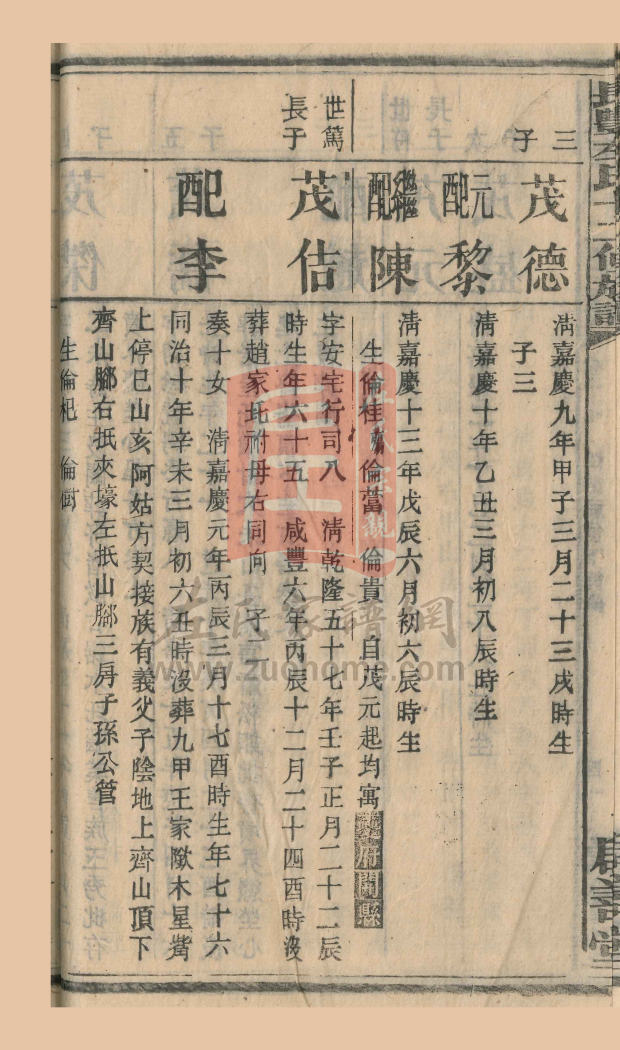 三子
茂德
清嘉慶九年甲子三月二十三戌時生
子三
元配黎
清嘉慶十年乙丑三月初八辰時生
繼配陳
清嘉慶十三年戊辰六月初六辰時生
生倫桂 倫 倫貴 自茂元起均寓夔府開縣
世篤長子
茂佶
字安宅行司八 清乾隆五十七年壬子正月二十二辰
時生年六十五 咸豐六年丙辰十二月二十四酉時沒
葬趙家坨祔母右同向 子二
配李
奏十女 清嘉慶元年丙辰三月十七酉時生年七十六
同治十年辛未三月初六丑時沒葬九甲王家 木星
上停巳山亥 阿姑方契接族有義父子陰地上齊山頂下
齊山腳右抵夾壕左抵山腳三房子孫公管
生倫杞 倫樹
左氏家譜網
www.zuohome.com